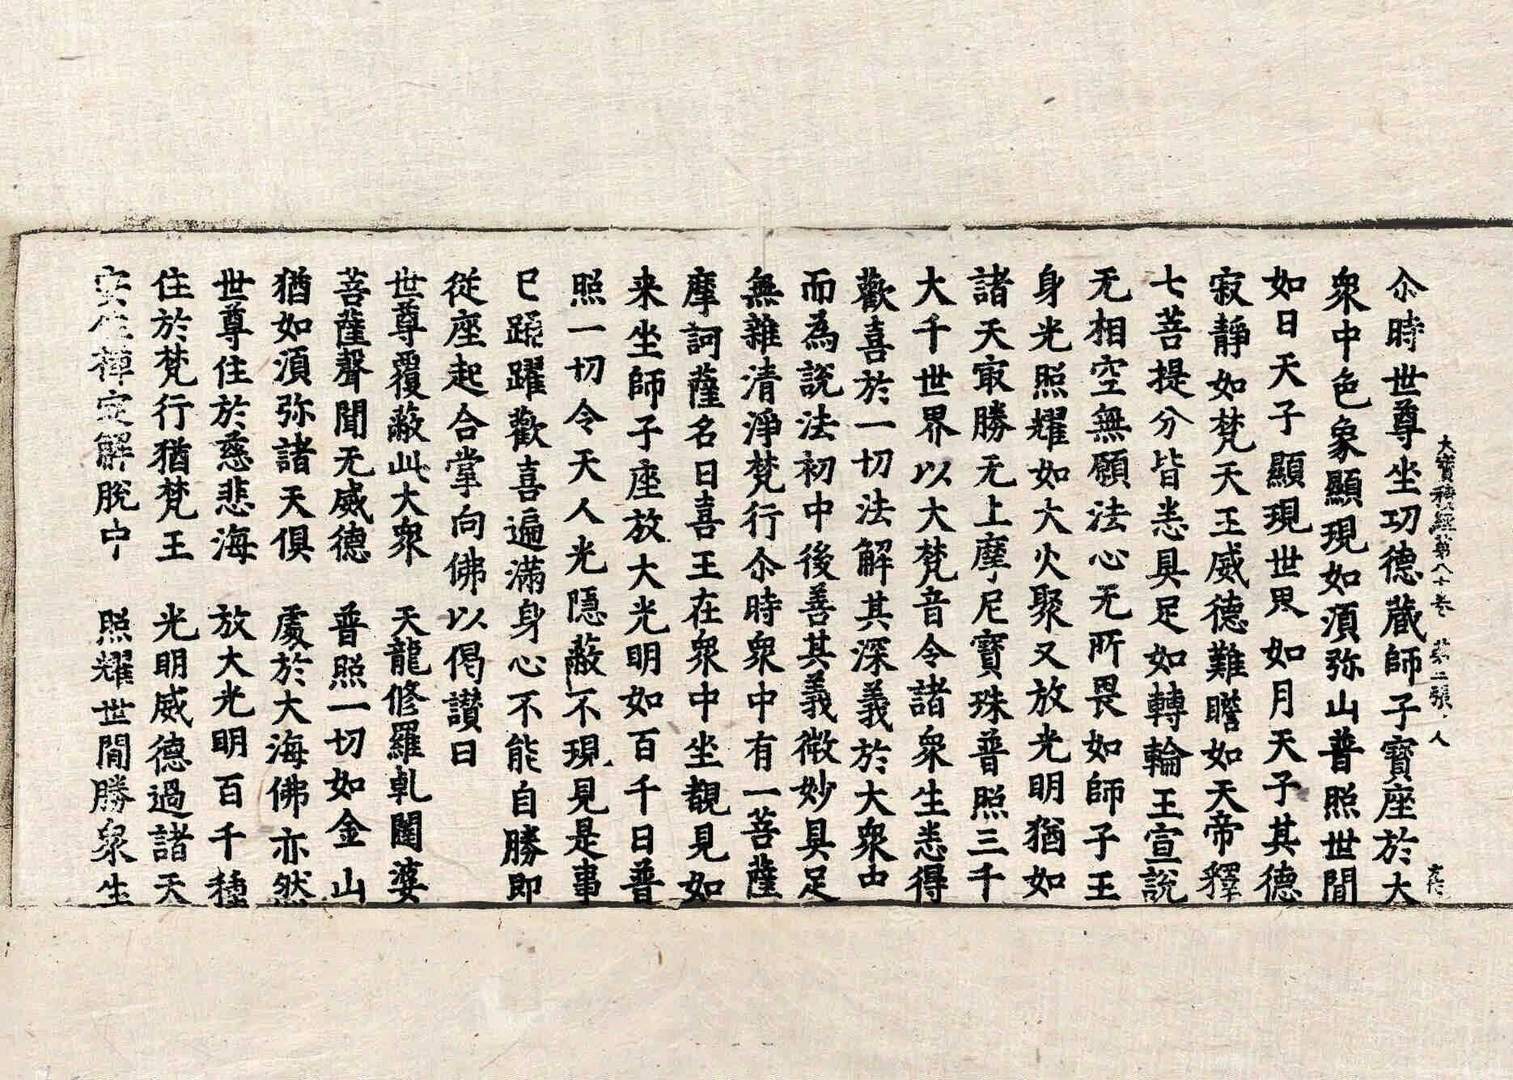 大寶積經第八十卷 第二張 人
尒時世尊坐功德蔵師子寶座於大
衆中色象顯現如湏弥山普照世間
如日天子顯現世界如月天子其德
寂靜如梵天王威德難瞻如天帝釋
七菩提分皆悉具足如轉輪王宣說
无相空無願法心无所畏如師子王
身光照耀如大火聚又放光明猶如
諸天冣勝无上摩尼寶珠普照三千
大千世界以大梵音令諸衆生悉得
歡喜於一切法解其深義於大衆中
而為說法初中後善其義微妙具足
無雜清淨梵行尒時衆中有一菩薩
摩訶薩名曰喜王在衆中坐覩見如
来坐師子座放大光明如百千日普
照一切令天人光隱蔽不現見是事
已踊躍歡喜遍滿身心不能自勝即
從座起合掌向佛以偈讃曰
世尊覆蔽此大衆 天龍修羅乹闥婆
菩薩聲聞无威德 普照一切如金山
猶如湏弥諸天俱 處於大海佛亦然
世尊住於慈悲海 放大光明百千種
住於梵行猶梵王 光明威德過諸天
安住禪定解脫中 照耀世間勝衆生